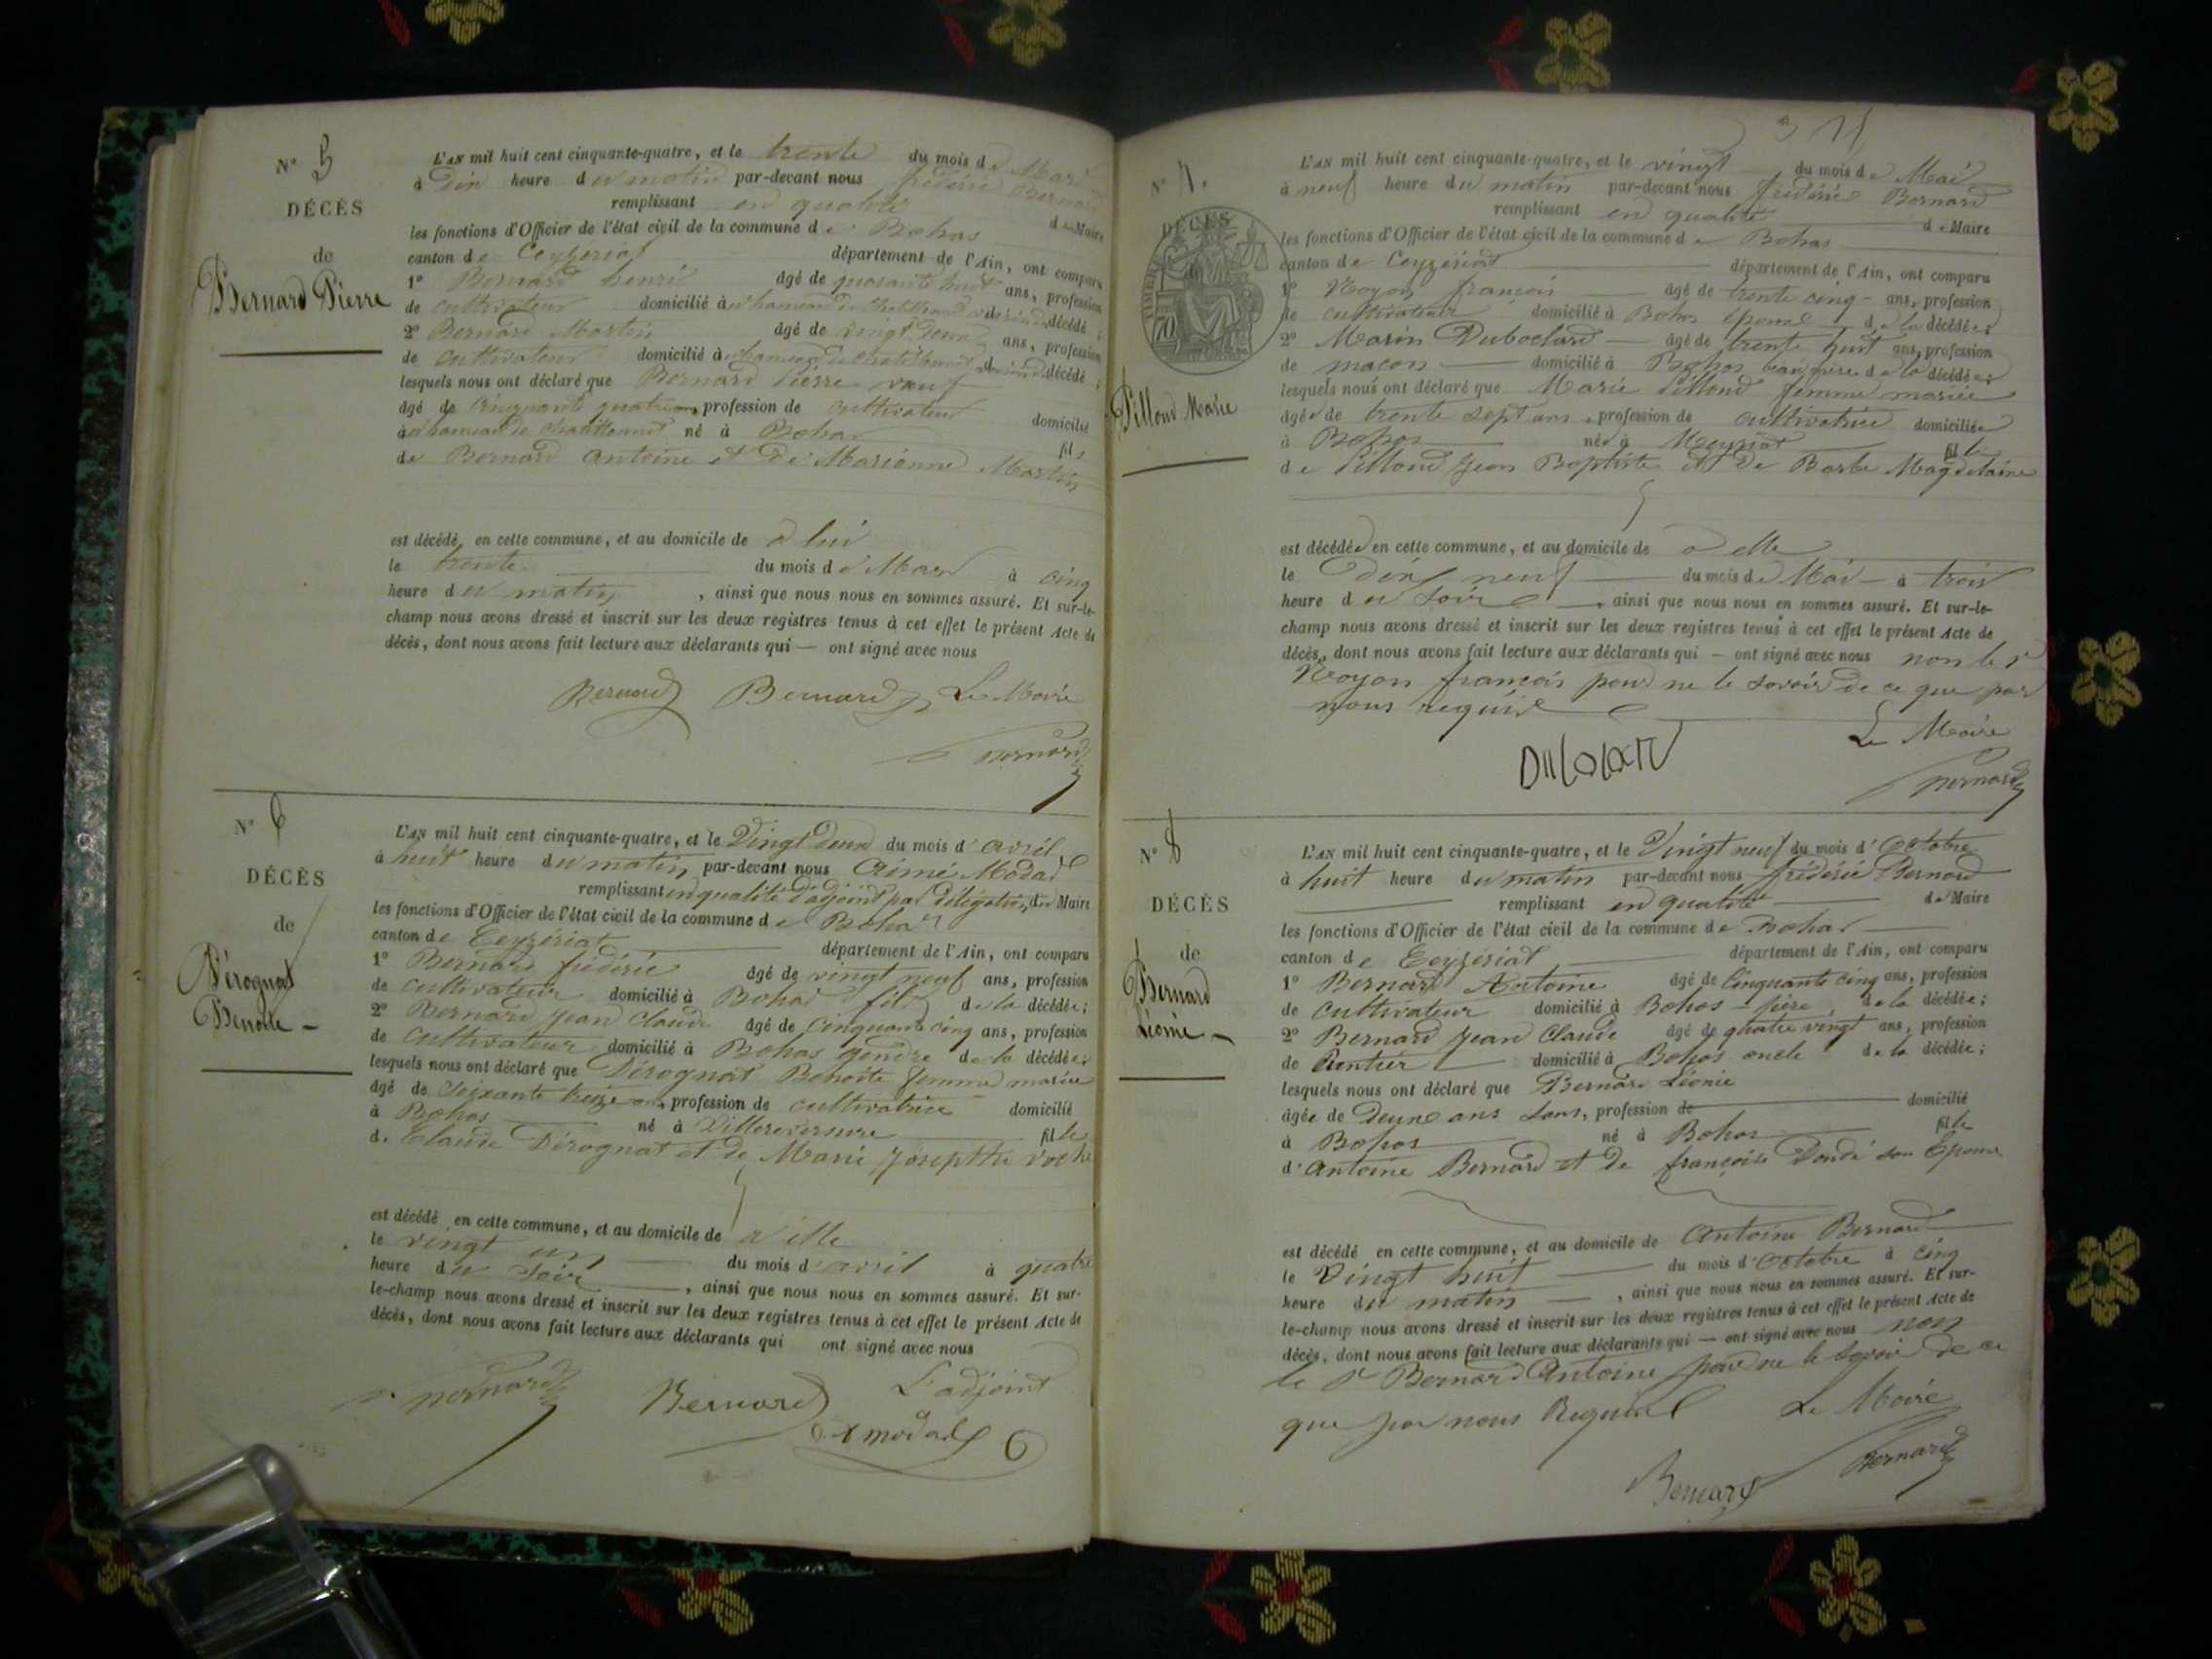 N° 5
DÉCÈS
de
Bernard Pierre
L'AN mil huit cent cinquante-quatre, et le trente du mois de Mars
à Dix heure du matin par-devant nous frédéric Bernard
remplissant en qualité de Maire
les fonctions d'Officier de l'état civil de la commune de Bohas
canton de Ceyzériat département de l'Ain, ont comparu
1° Bernard henri âgé de quarante huit ans, profession
de cultivateur domicilié à hameau de décédé;
2° Bernard Martin âgé de vingt deux ans, profession
de cultivateur domicilié à hameau de décédé;
lesquels nous ont déclaré que Bernard Pierre veuf
âgé de cinquante quatre ans, profession de cultivateur domicilié
à hameau de né à Bohas fils
de Bernard Antoine et de Marianne Martin
est décédé, en cette commune, et au domicile de a lui
le trente du mois de Mars à cinq
heure du matin, ainsi que nous nous en sommes assuré. Et sur-le-
champ nous avons dressé et inscrit sur les deux registres tenus à cet effet le présent Acte de
décès, dont nous avons fait lecture aux déclarants qui — ont signé avec nous
Bernard Bernard Le Maire
Bernard
N° 6
DÉCÈS
de
Pérognat
Benoite –
L'AN mil huit cent cinquante-quatre, et le Vingt Deux du mois d'avril
à huit heure du matin par-devant nous Aimé Modas
remplissant en qualité d'adjoint par délégation, du Maire
les fonctions d'Officier de l'état civil de la commune de Bohas
canton de Ceyzériat département de l'Ain, ont comparu
1° Bernard frédéric âgé de vingt neuf ans, profession
de cultivateur domicilié à Bohas fils de la décédée;
2° Bernard Jean Claude âgé de cinquante cinq ans, profession
de cultivateur domicilié à Bohas gendre de la décédée;
lesquels nous ont déclaré que Pérognat Benoite femme mariée
âgé de soixante treize ans, profession de cultivatrice domicilié
à Bohas né à Villereversure fille
de Claude Pérognat et de Marie Josephte
est décédé en cette commune, et au domicile de a elle
le vingt un du mois d'avril à quatre
heure du soir, ainsi que nous nous en sommes assuré. Et sur-
le-champ nous avons dressé et inscrit sur les deux registres tenus à cet effet le présent Acte de
décès, dont nous avons fait lecture aux déclarants qui ont signé avec nous
Bernard Bernard L'adjoint
N° 7.
DÉCÈS
TIMBRE
70
Pilloud Marie
L'AN mil huit cent cinquante-quatre, et le vingt du mois de Mai
à neuf heure du matin par-devant nous frédéric Bernard
remplissant en qualité de Maire
les fonctions d'Officier de l'état civil de la commune de Bohas
canton de Ceyzériat département de l'Ain, ont comparu
1° Noyon françois âgé de trente cinq ans, profession
de cultivateur domicilié à Bohas époux de la décédée;
2° Marin Duboclard âgé de trente huit ans, profession
de macon domicilié à Bohas beau frère de la décédée;
lesquels nous ont déclaré que Marie Pilloud femme mariée
âgée de trente sept ans, profession de cultivatrice domiciliée
à Bohas née à Meyriat fille
de Pilloud Jean Baptiste et De Barbe Magdelaine
est décédée en cette commune, et au domicile de a elle
le Dix neuf du mois de Mai à trois
heure du soir, ainsi que nous nous en sommes assuré. Et sur-le-
champ nous avons dressé et inscrit sur les deux registres tenus à cet effet le présent Acte de
décès, dont nous avons fait lecture aux déclarants qui — ont signé avec nous non le Sr
Noyon françois pour ne le savoir de ce que par
nous requis
Le Maire
Bernard
N° 8
DÉCÈS
de
Bernard
Léonie –
L'AN mil huit cent cinquante-quatre, et le Vingt neuf du mois d'Octobre
à huit heure du matin par-devant nous frédéric Bernard
remplissant en qualité de Maire
les fonctions d'Officier de l'état civil de la commune de Bohas
canton de Ceyzériat département de l'Ain, ont comparu
1° Bernard Antoine âgé de Cinquante cinq ans, profession
de cultivateur domicilié à Bohas père de la décédée;
2° Bernard Jean Claude âgé de quatre vingt ans, profession
de Rentier domicilié à Bohas oncle de la décédée;
lesquels nous ont déclaré que Bernard Léonie
âgée de Deux ans sans, profession de domicilié
à Bohas né à Bohas fille
d'Antoine Bernard et De françoise son Epouse
est décédé en cette commune, et au domicile de Antoine Bernard
le Vingt huit du mois d'Octobre à cinq
heure du matin, ainsi que nous nous en sommes assuré. Et sur-
le-champ nous avons dressé et inscrit sur les deux registres tenus à cet effet le présent Acte de
décès, dont nous avons fait lecture aux déclarants qui — ont signé avec nous non
le Sr Bernard Antoine pour ne le savoir de ce
que par nous Requis Le Maire
Bernard Bernard